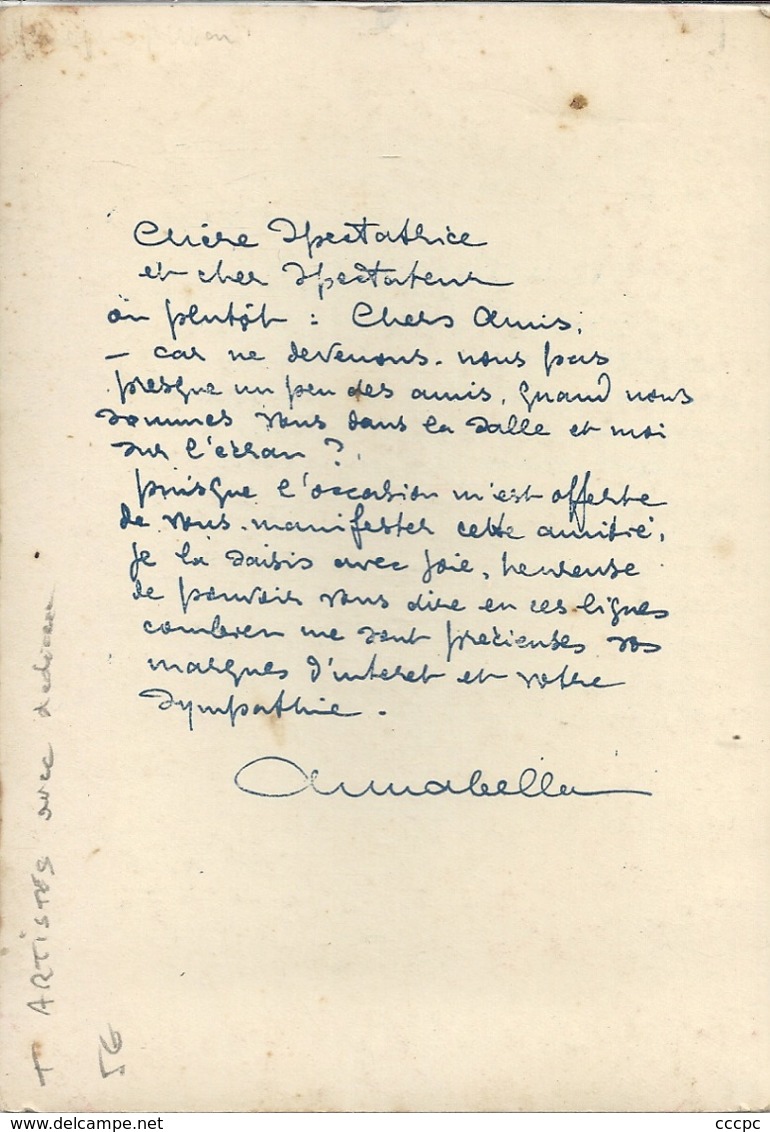 Chère Spectatrice
et cher Spectateur
ou plutôt : Chers Amis,
— car ne devenons-nous pas
presque un peu des amis, quand nous
sommes vous dans la salle et moi
sur l'écran ?
puisque l'occasion m'est offerte
de vous manifester cette amitié,
je la saisis avec joie, heureuse
de pouvoir vous dire en ces lignes
combien me sont précieuses vos
marques d'interet et votre
sympathie.
Annabella
+ ARTISTES avec dedicace
56
www.delcampe.net
cccpc